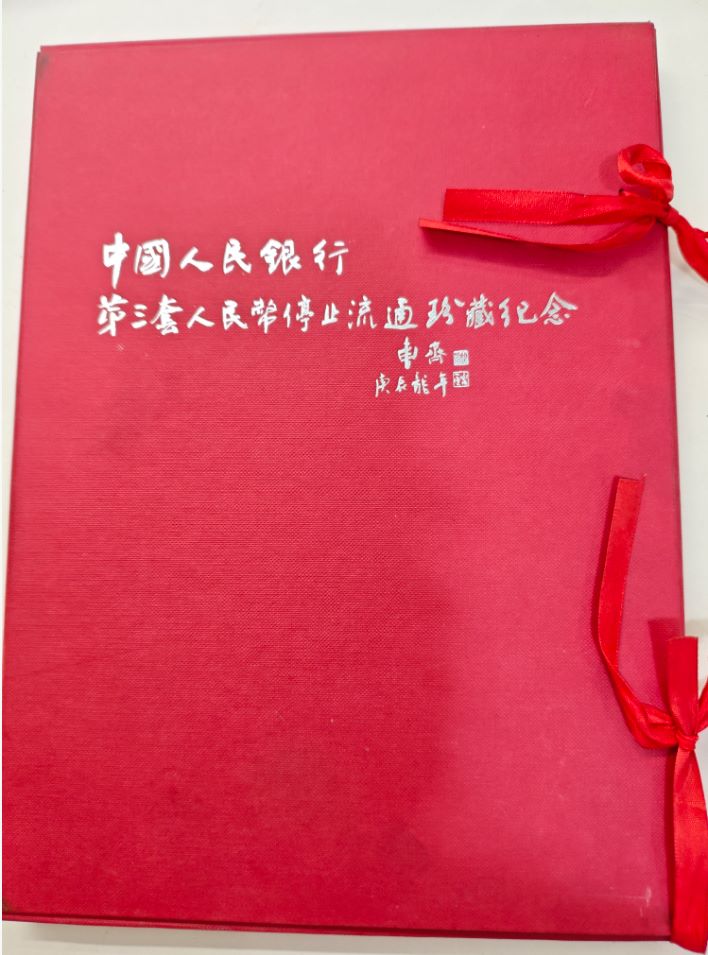 中國人民銀行
第三套人民幣停止流通珍藏纪念
庚辰龍年